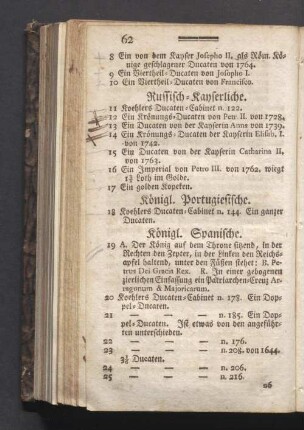 62
8 Ein von dem Kayser Josepho II. als Röm. Kö-
nige geschlagener Ducaten von 1764.
9 Ein Viertheil-Ducaten von Josepho I.
10 Ein Viertheil-Ducaten von Francisco.
Russisch-Kayserliche.
11 Koehlers Ducaten-Cabinet n. 122.
12 Ein Krönungs-Ducaten von Petr II. von 1728.
13 Ein Ducaten von der Kayserin Anna von 1739.
14 Ein Krönungs-Ducaten der Kayserin Elisab. I.
von 1742.
15 Ein Ducaten von der Kayserin Catharina II.
von 1763.
16 Ein Imperial von Petro III. von 1762. wiegt
Loth im Golde.
17 Ein golden Kopeken.
Königl. Portugiesische.
18 Koehlers Ducaten-Cabinet n. 144. Ein ganzer
Ducaten.
Königl. Spanische.
19 A. Der König auf dem Throne sitzend, in der
Rechten den Zepter, in der Linken den Reichs-
apfel haltend, unter den Füssen stehet: B. Pe-
trus Dei Gracia Rex. R. In einer gebogenen
zierlichen Einfassung ein Patriarchen-Creuz Ar-
ragonum & Majoricarum.
20 Koehlers Ducaten-Cabinet n. 178. Ein Dop-
pel-Ducaten.
21 — — — n. 185. Ein Dop-
pel-Ducaten. Ist etwas von den angeführ-
ten unterschieden.
22 — — — n. 176.
23 — — — n. 208. von 1644.
3½ Ducaten.
24 — — — n. 206.
25 — — — n. 216.
26